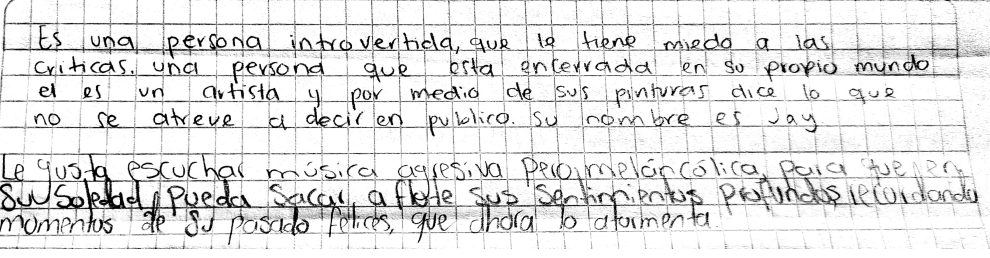 Es una persona introvertida, que le tiene miedo a las
criticas. una persona que esta encerrada en su propio mundo
el es un artista y por medio de sus pinturas dice lo que
no se atreve a decir en publico. Su nombre es Jay
Le gusta escuchar música agresiva pero melancólica, para que en
Su Soledad, Pueda Sacar a flote sus sentimientos profundos recordando
momentos de su pasado felices, que ahora lo atormenta.